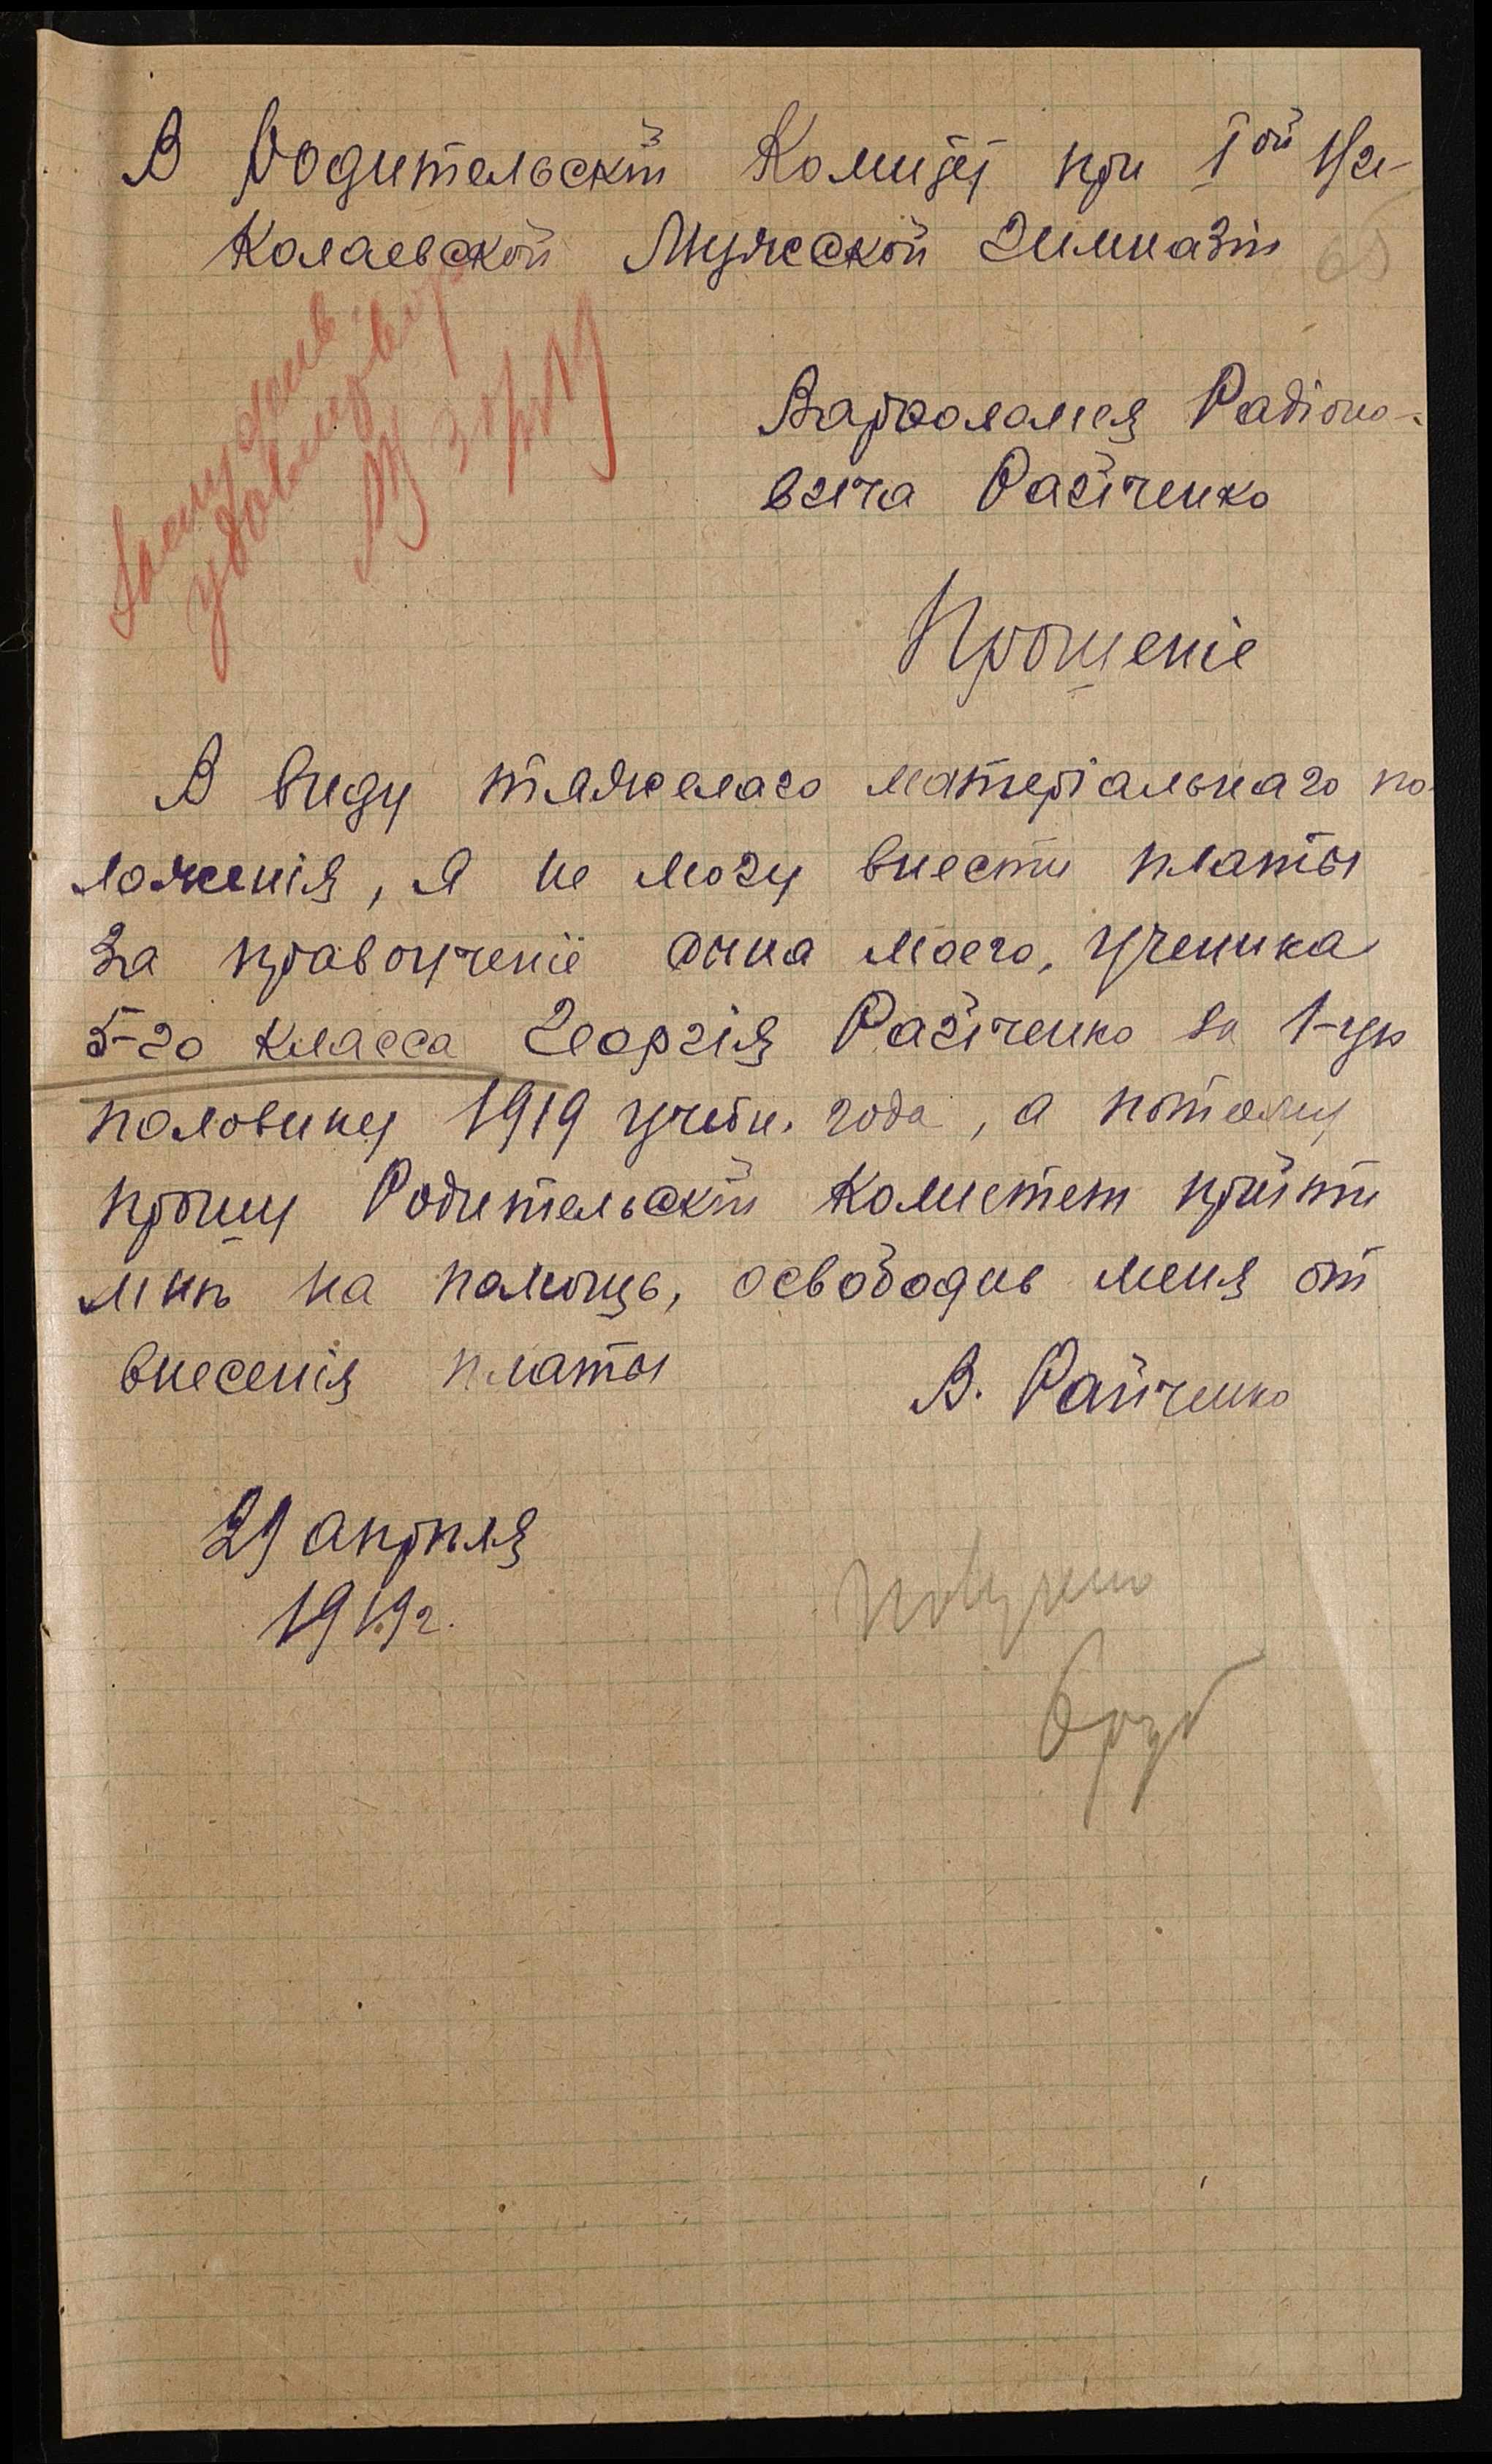 В Родительскій Комитет при 1ой Ни-
колаевской Мужеской Гимназіи
65
Варфоломея Радіоно-
вича Райченко
Прошеніе
В виду тяжелаго матеріальнаго по-
ложенія, я не могу внести платы
за правоученіе сына моего, ученика
5-го класса Георгія Райченко за 1-ую
половину 1919 учебн. года, а потому
прошу Родительскій Комитет прійти
мнѣ на помощь, освободив меня от
внесенія платы
В. Райченко
29 апрѣля
1919г.